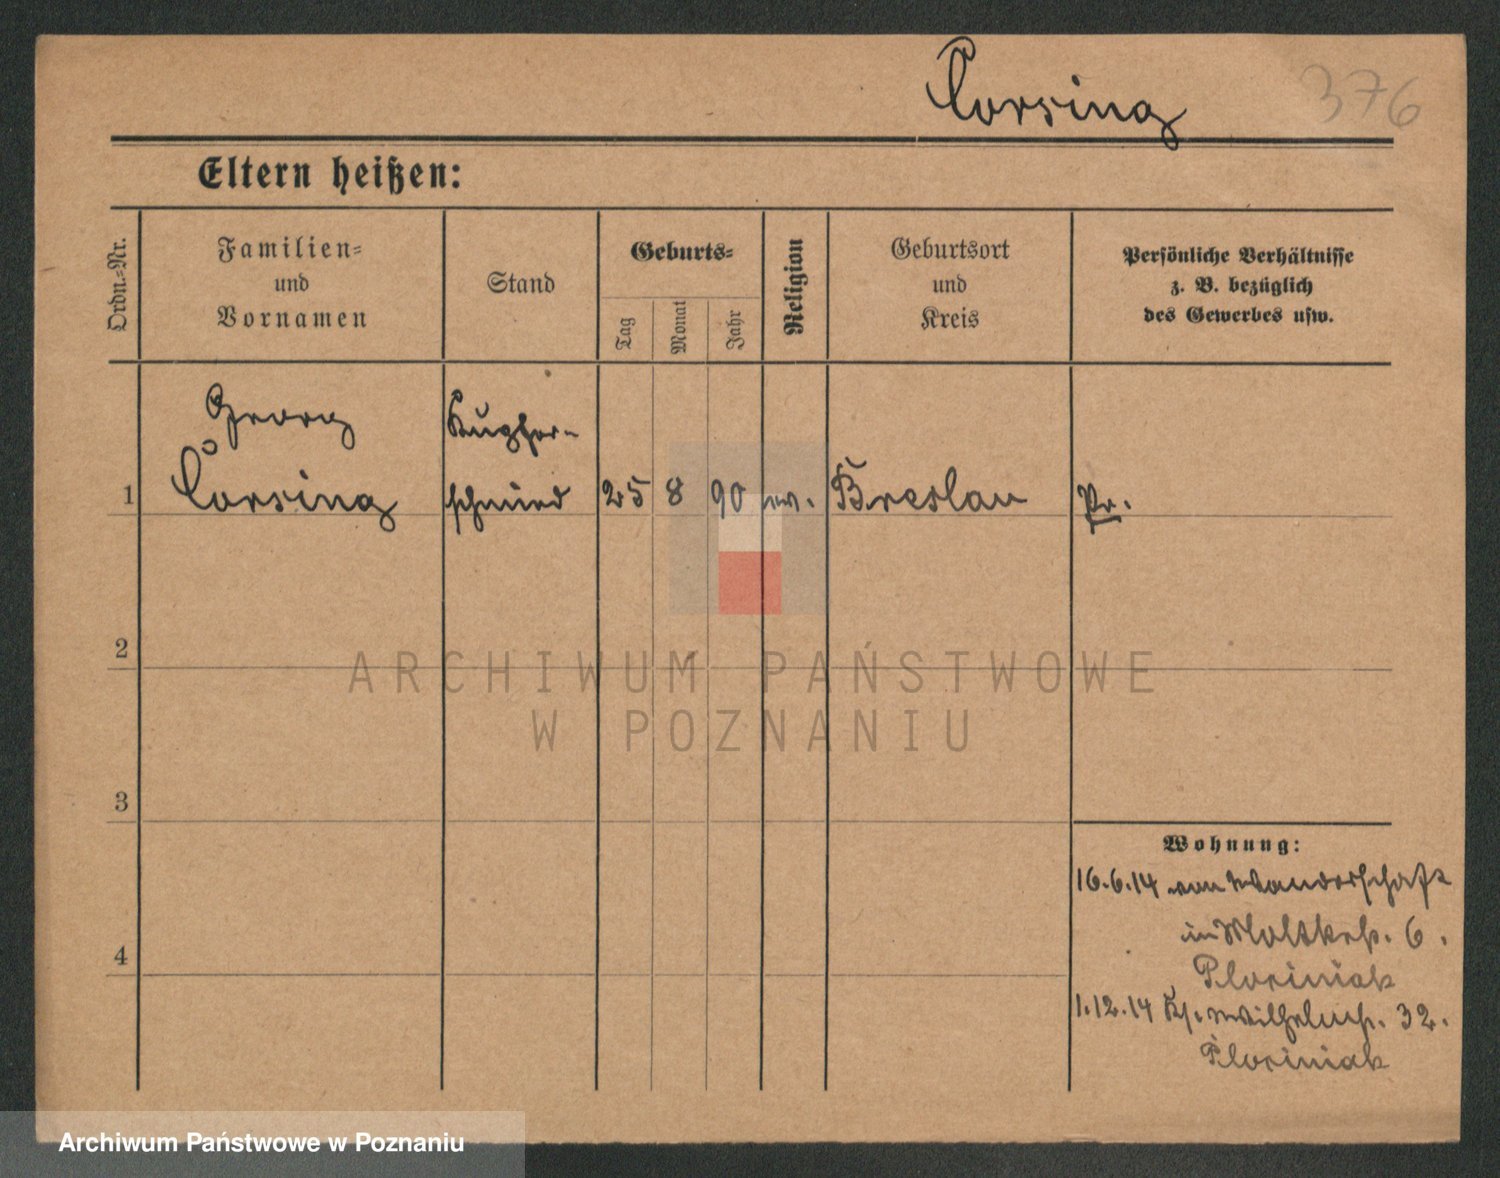 Corsing
376
Eltern heißen:
Ordn.=Nr.
Familien=
und
Vornamen
Stand
Geburts=
Tag
Monat
Jahr
Religion
Geburtsort
und
Kreis
Persönliche Verhältnisse
z. B. bezüglich
des Gewerbes usw.
Georg Kupfer-
1 Corsing schmied 25 8 90 ev. Breslau Pr.
2
ARCHIWUM PAŃSTWOWE
W POZNANIU
3
Wohnung:
16.6.14 von Wanderschaft
in Moltkestr. 6.
4
1.12.14 Wilhelmstr. 32.
Archiwum Państwowe w Poznaniu